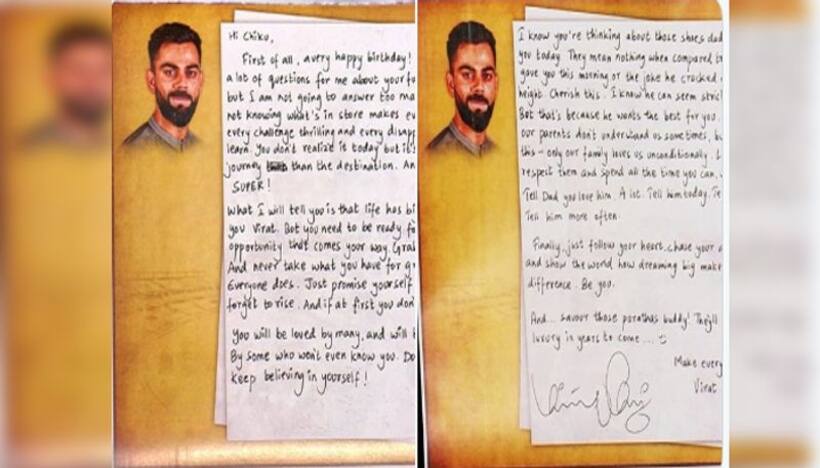 Hi Chiku,
First of all, a very happy birthday!
a lot of questions for me about your fu
but I am not going to answer too ma
not knowing what's in store makes ev
every challenge thrilling and every disapp
learn. You don't realize it today but it
journey than the destination. An
SUPER!
What I will tell you is that life has bi
you Virat. But you need to be ready fo
opportunity that comes your way. Gra
And never take what you have for gr
Everyone does. Just promise yourself
forget to rise. And if at first you don
You will be loved by many, and will b
By some who won't even know you. Do
Keep believing in yourself!
I know you're thinking about those shoes dad
you today. They mean nothing when compared t
gave you this morning or the joke he cracked
height. Cherish this. I know he can seem stric
But that's because he wants the best for you.
our parents don't understand us sometimes, bu
this - only our family loves us unconditionally. L
respect them and spend all the time you can,
Tell Dad you love him. A lot. Tell him today. Te
Tell him more often.
Finally, just follow your heart, chase your d
and show the world how dreaming big make
difference. Be you.
And... savour those parathas buddy! They'll
luxury in years to come....
Make every
Virat